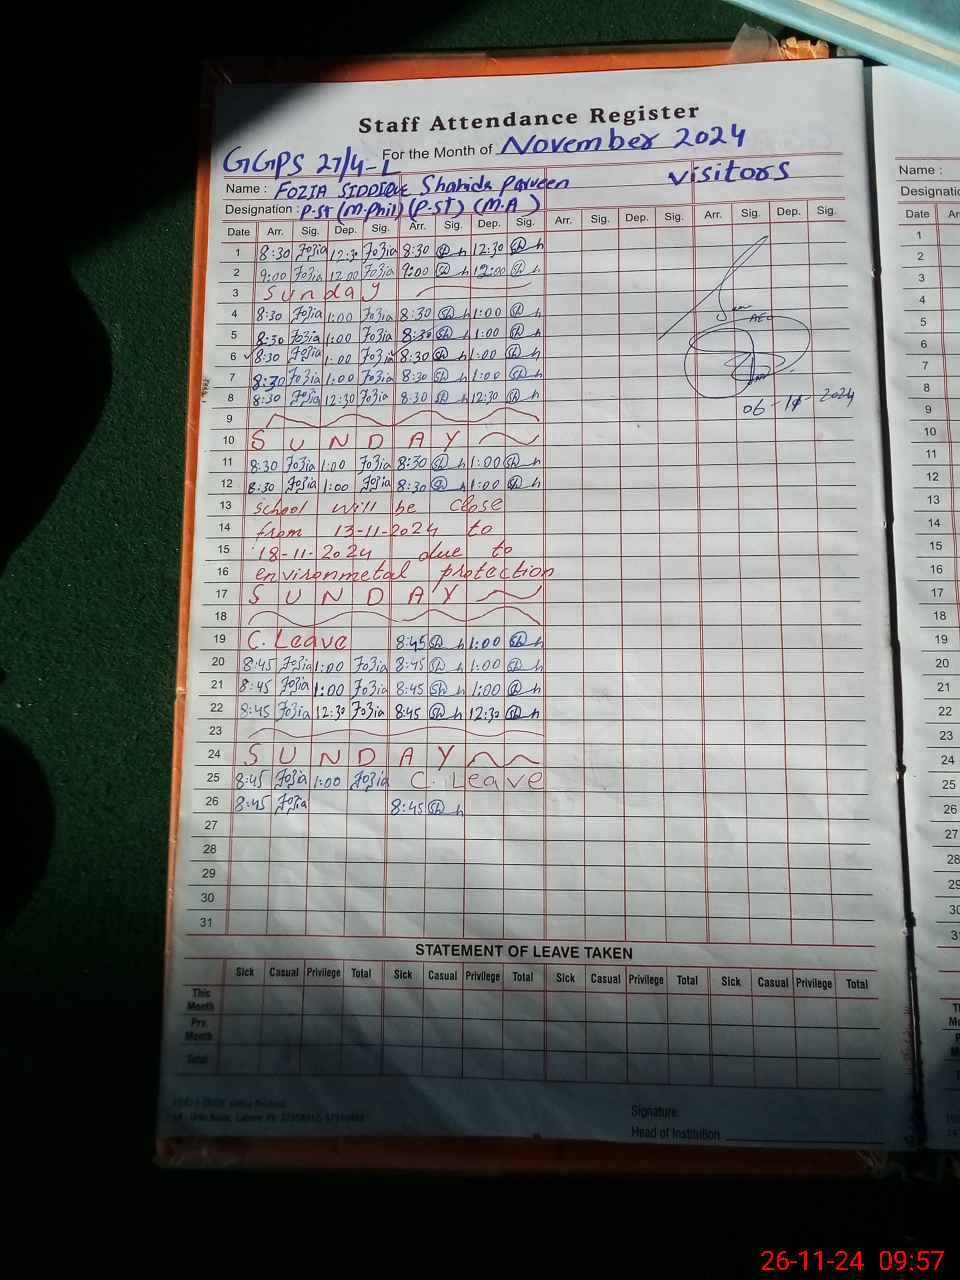 Staff Attendance Register
GGPS 27/4-L For the Month of November 2024
Name : FOZIA SIDDIQUE Shahida Parveen visitors
Designation : P-ST (M-Phil) (P-ST) (M.A)
Date Arr. Sig. Dep. Sig. Arr. Sig. Dep. Sig. Arr. Sig. Dep. Sig. Arr. Sig. Dep. Sig.
1 8:30 Fozia 12:30 Fozia 8:30 Sh 12:30 Sh
2 9:00 Fozia 12:00 Fozia 9:00 Sh 12:00 Sh
3 Sunday
4 8:30 Fozia 1:00 Fozia 8:30 Sh 1:00 Sh
5 8:30 Fozia 1:00 Fozia 8:30 Sh 1:00 Sh
AEO
6 8:30 Fozia 1:00 Fozia 8:30 Sh 1:00 Sh
7 8:30 Fozia 1:00 Fozia 8:30 Sh 1:00 Sh
8 8:30 Fozia 12:30 Fozia 8:30 Sh 12:30 Sh
06-11-2024
9
10 SUNDAY
11 8:30 Fozia 1:00 Fozia 8:30 Sh 1:00 Sh
12 8:30 Fozia 1:00 Fozia 8:30 Sh 1:00 Sh
13 school will be close
14 from 13-11-2024 to
15 18-11-2024 due to
16 environmetal protection
17 SUNDAY
18
19 C. Leave 8:45 Sh 1:00 Sh
20 8:45 Fozia 1:00 Fozia 8:45 Sh 1:00 Sh
21 8:45 Fozia 1:00 Fozia 8:45 Sh 1:00 Sh
22 8:45 Fozia 12:30 Fozia 8:45 Sh 12:30 Sh
23
24 SUNDAY
25 8:45 Fozia 1:00 Fozia C. Leave
26 8:45 Fozia 8:45 Sh
27
28
29
30
31
STATEMENT OF LEAVE TAKEN
Sick Casual Privilege Total Sick Casual Privilege Total Sick Casual Privilege Total Sick Casual Privilege Total
This Month
Prv. Month
Total
Signature:
Head of Institution.
Name :
Designation
Date Arr.
1
2
3
4
5
6
7
8
9
10
11
12
13
14
15
16
17
18
19
20
21
22
23
24
25
26
27
28
29
30
26-11-24 09:57